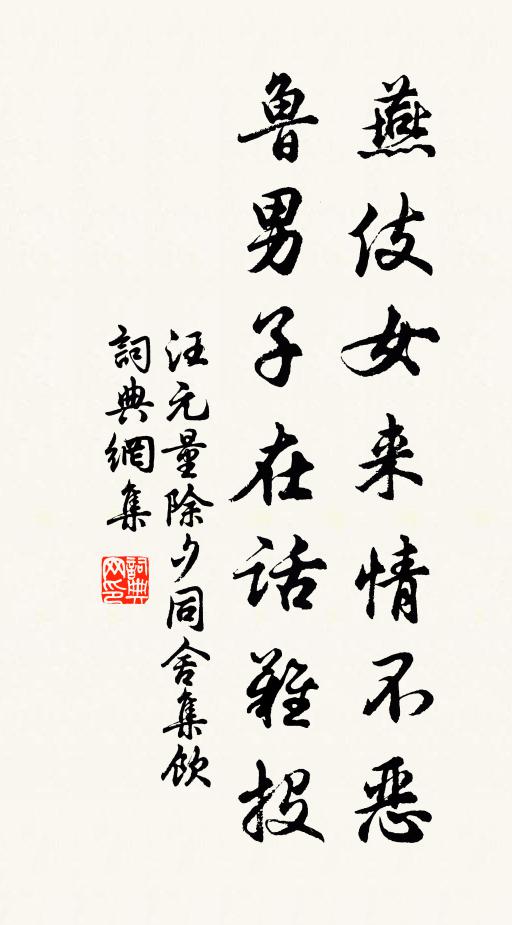 燕伎女来情不恶
鲁男子在话难投
汪元量除夕同舍集飲
詞典網集
詞典网印